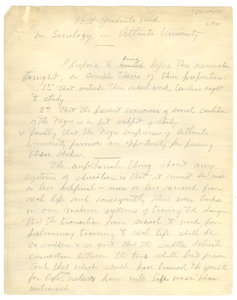 Post Graduate Work
in Sociology in Atlanta University
I propose to bring before this assembly
tonight, a simple thesis of three propositions:
1st that outside these school word teachers ought
to study
2nd That the present economic & social condition
of the Negro is a fit subject of study
finally that the Negro conferences of Atlanta
University furnish an opportunity for pursuing
these studies.
The unfortunate thing about any
systems of education is that it must be more
or less artificial — more or less removed from
real life and consequently there ever lacks
in our modern systems of training the danger
that the transition from school to work, from
preliminary training to real life shall be
so sudden & so great that the subtle delicate
connection between the two shall be lost
And that which should have trained the youth
for life leads him into life worse than
untrained